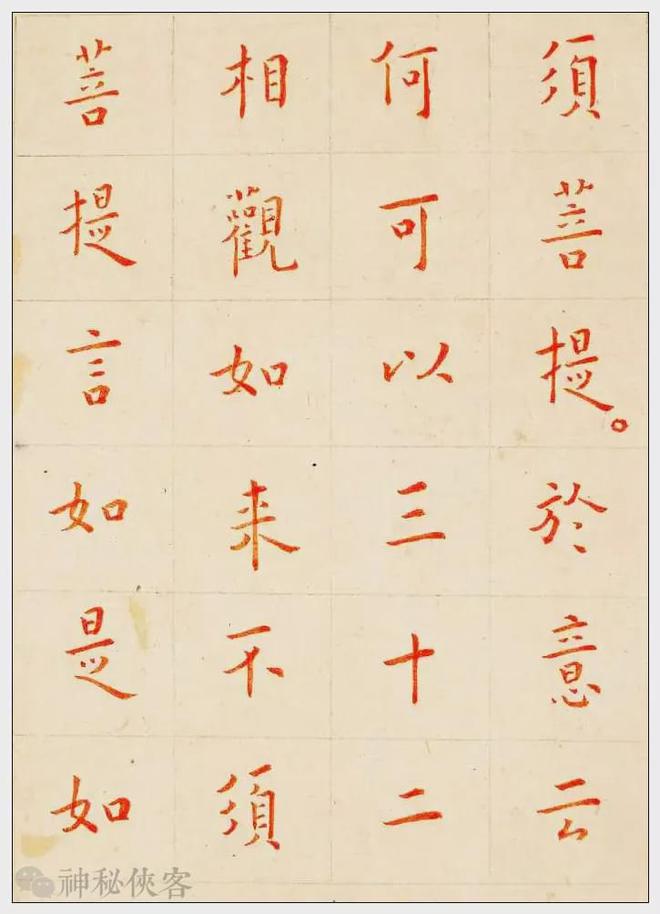 須菩提。於意云
何可以三十二
相觀如来不須
菩提言如是如
神秘俠客